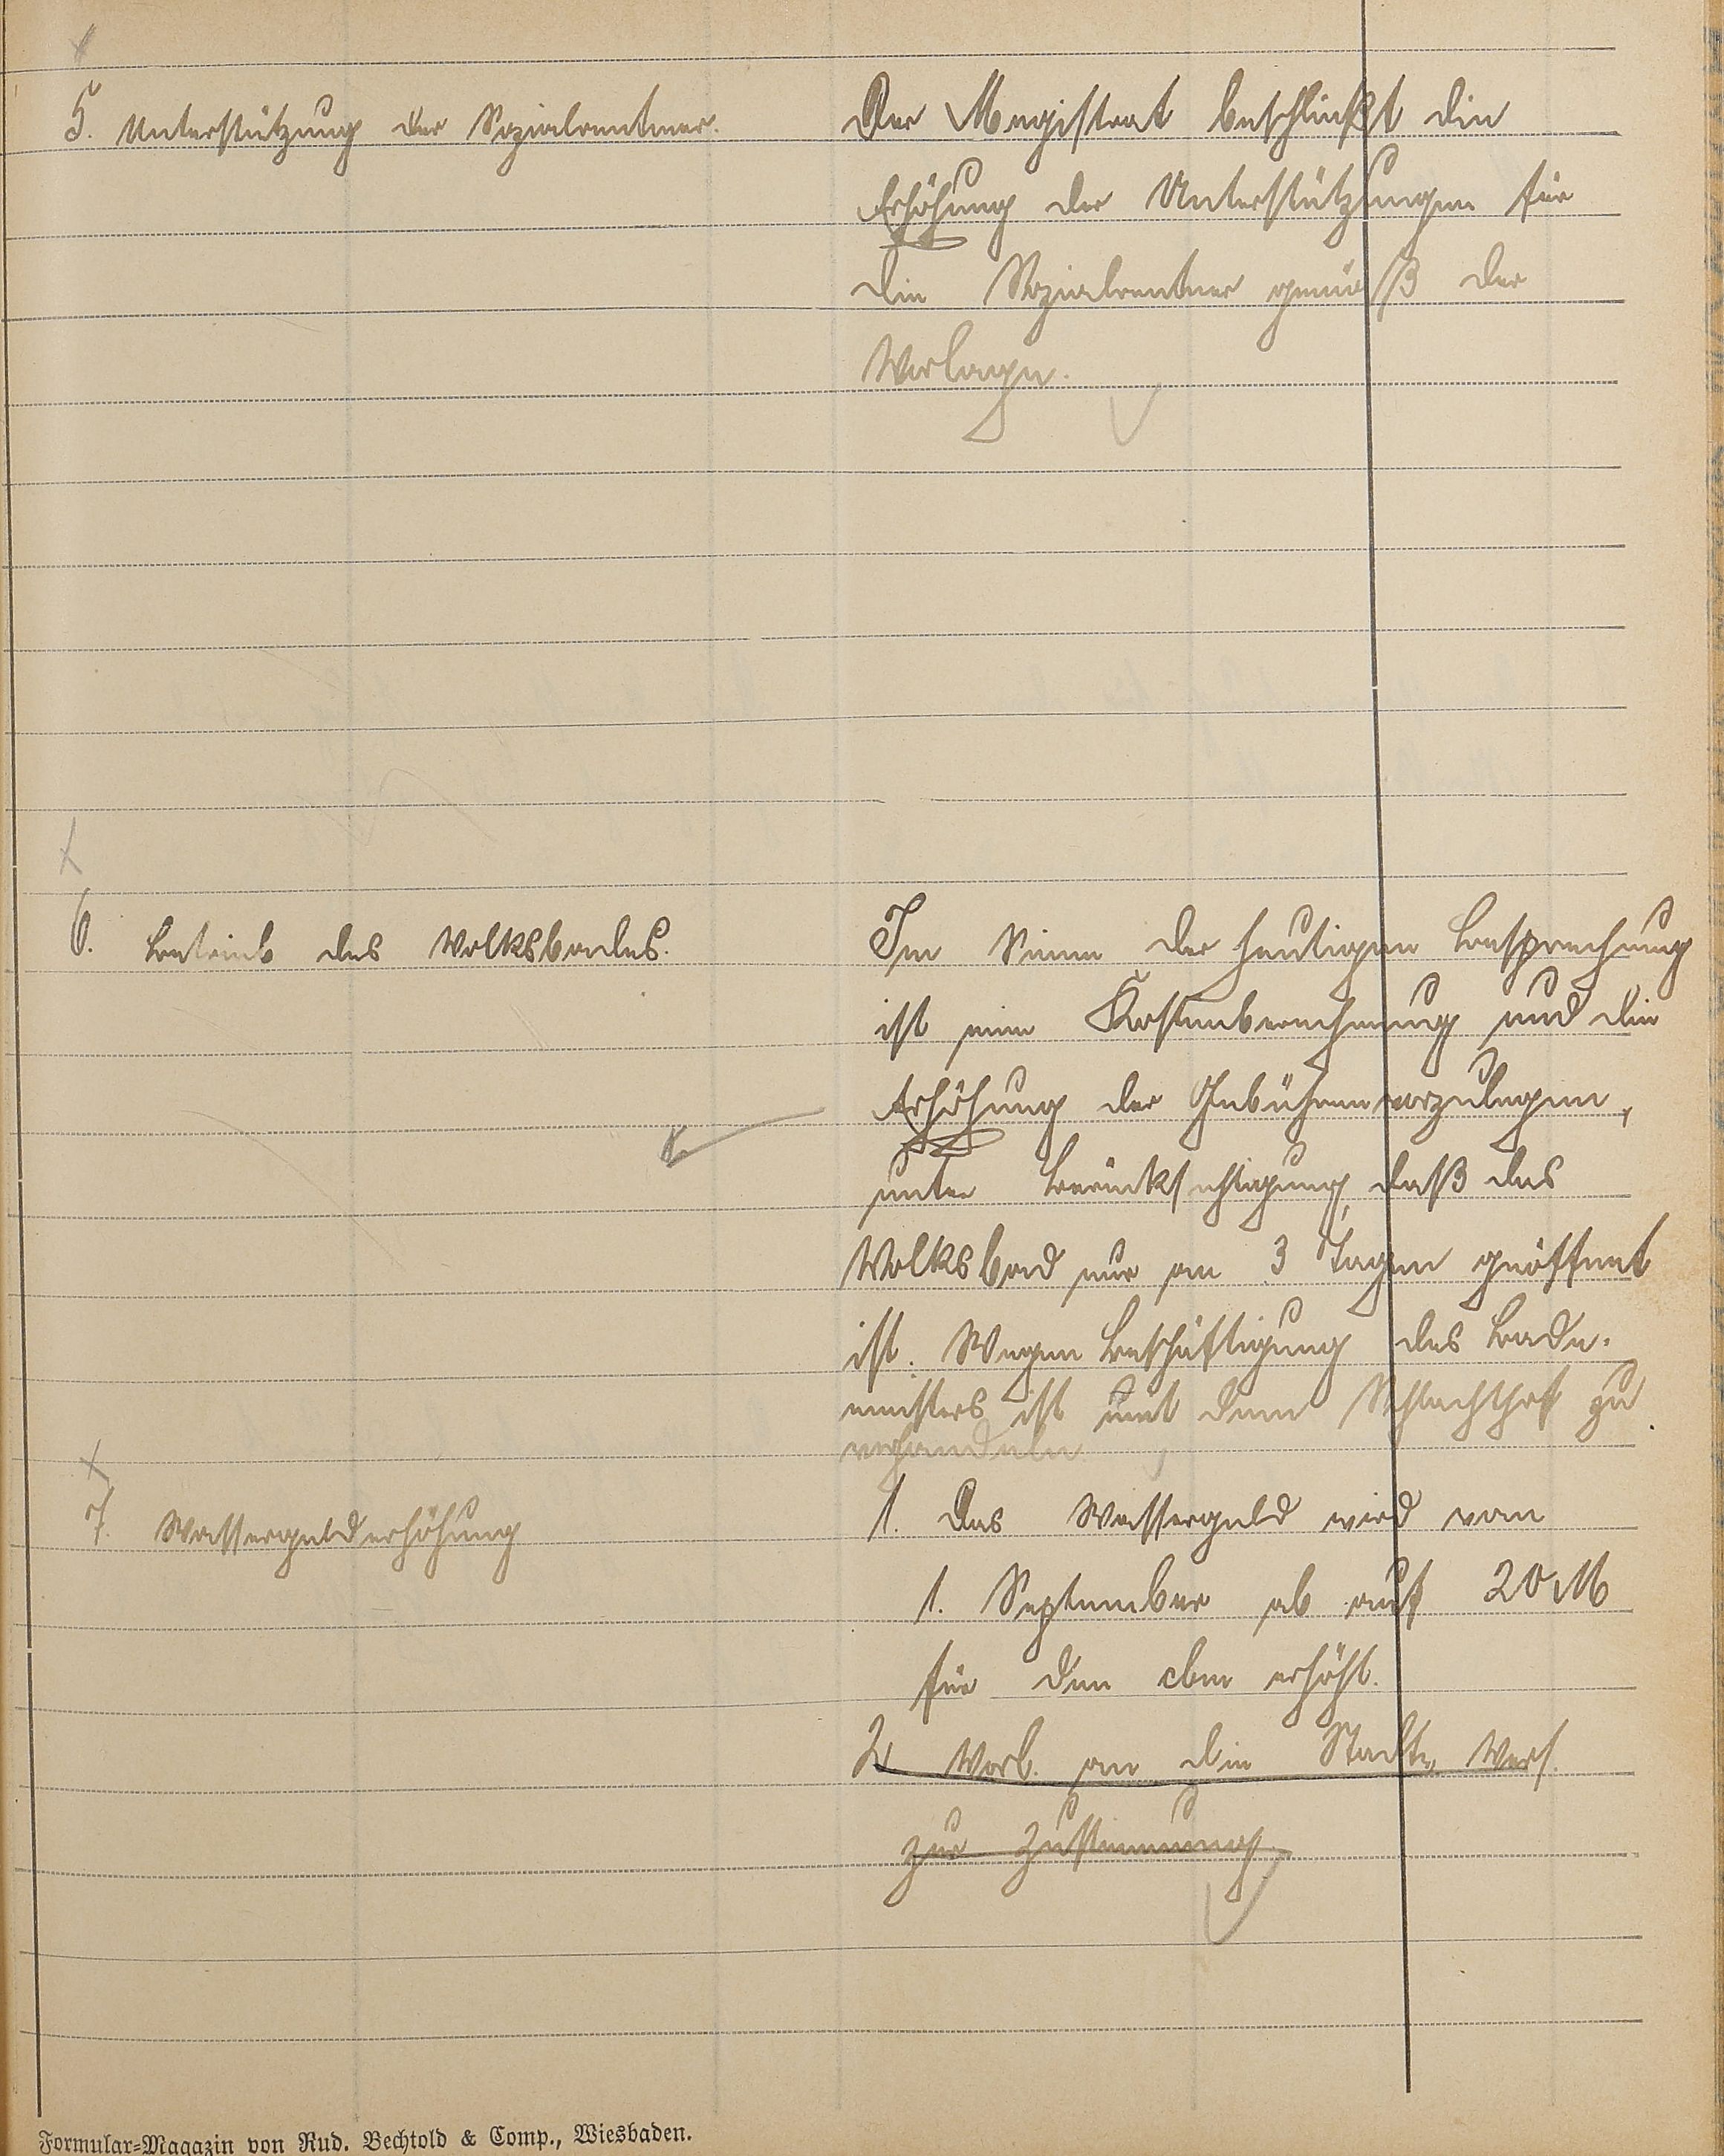 5. Unterstützung der Sozialrentner.
Der Magistrat beschließt die
Erhöhung der Unterstützungen für
die Sozialrentner gemäß der
Vorlage.
6. Betrieb des Volksbades.
Im Sinne der heutigen Besprechung
ist eine Kostenberechnung und die
Erhöhung der Gebühren vorzulegen,
unter Berücksichtigung, daß das
Volksbad nur an 3 Tagen geöffnet
ist. Wegen Beschäftigung des Bade-
meisters ist mit dem Schlachthof zu
verhandeln.
7. Wassergelderhöhung
1. Das Wassergeld wird vom
1. September ab auf 20 M
für den cbm erhöht.
2. Vorl. an die Stadtv. Vers.
zur Zustimmung.
Formular-Magazin von Rud. Bechtold & Comp., Wiesbaden.